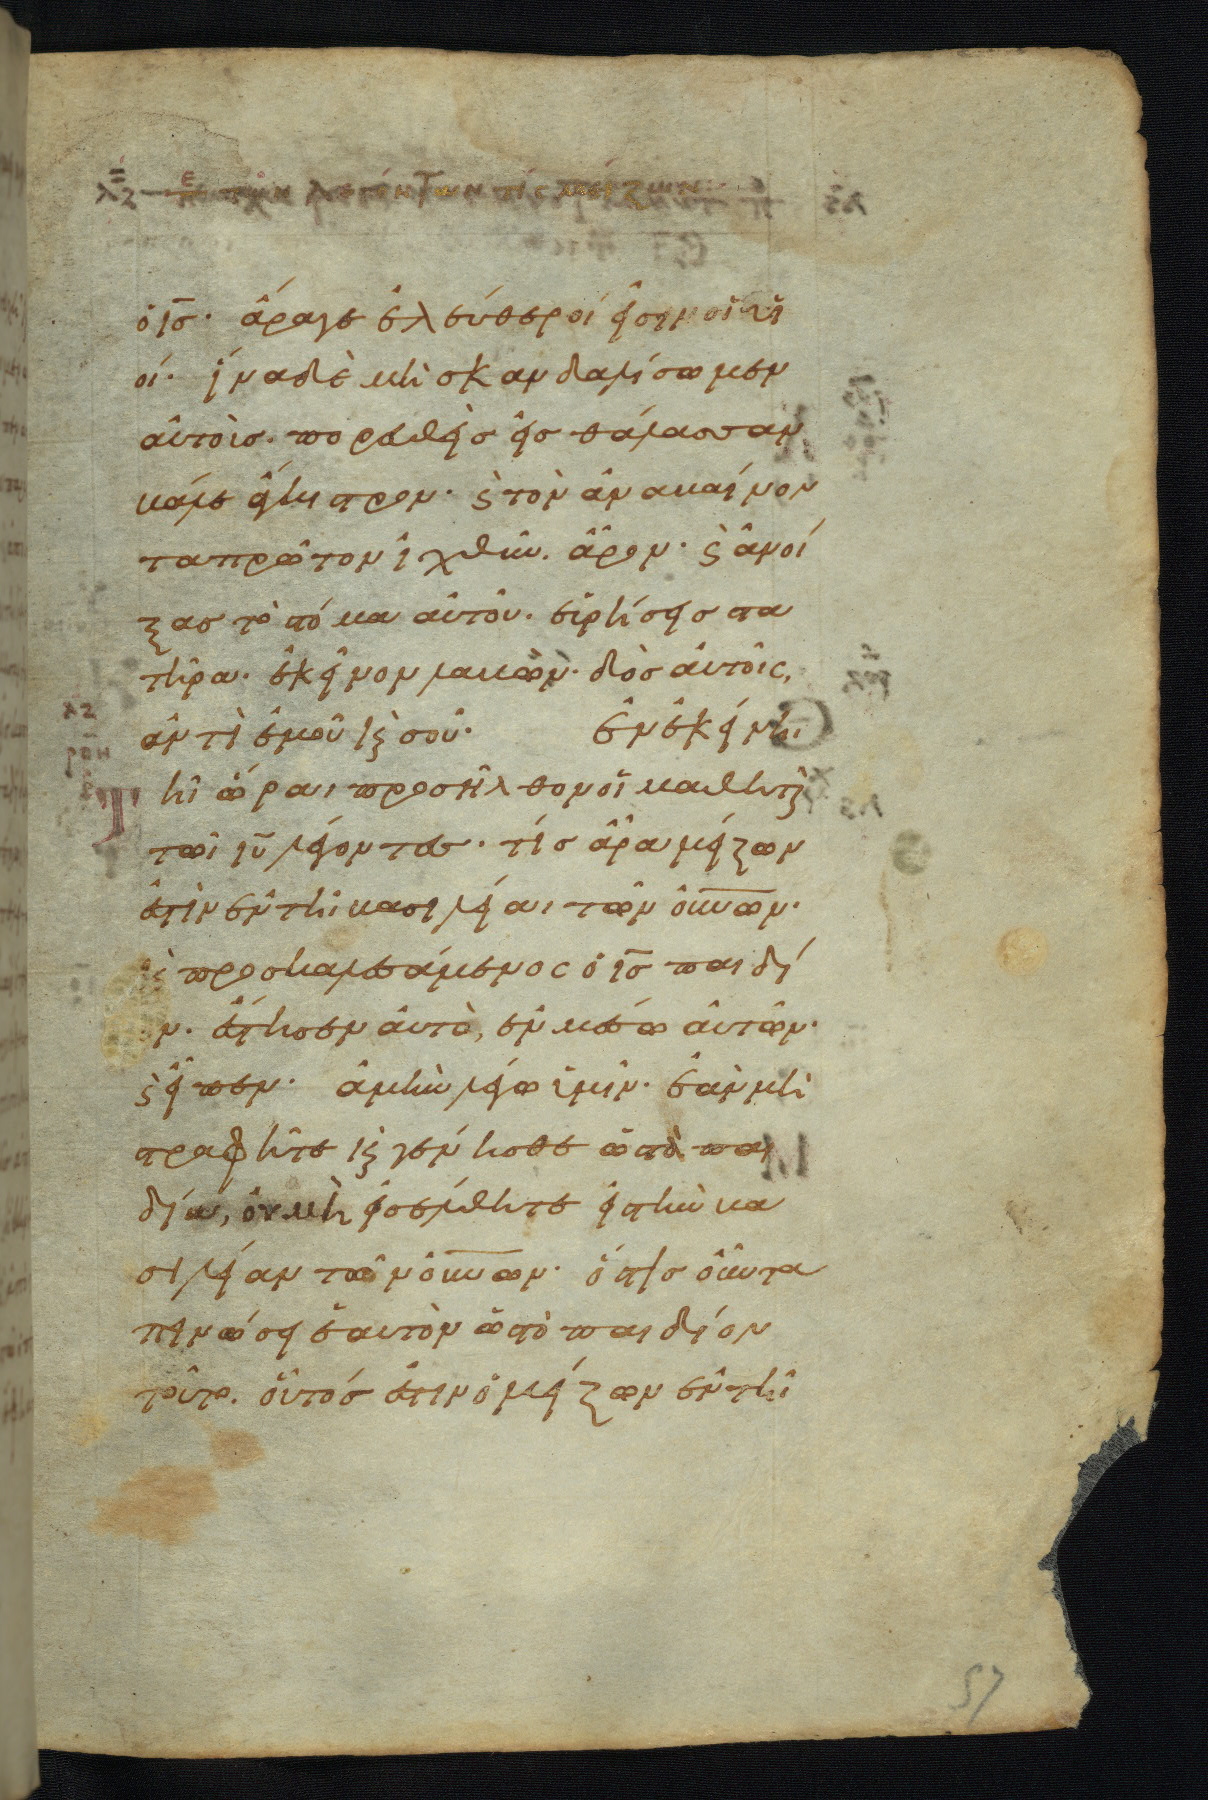 λζ πε τῶν λεγόντων τίς μείζων
ὁ ι̅σ̅· ἄραγε ἐλεύθεροί εἰσιν οἱ υἱ
οί· ἵνα δὲ μὴ σκανδαλίσωμεν
αὐτοὺσ· πορευθεὶσ εἰσ θάλασσαν
βάλε ἄγκιστρον· καὶ τὸν ἀναβαίνον
τα πρῶτον ἰχθὺν. ἆρον· καὶ ἀνοί
ξασ τὸ στόμα αὐτοῦ· εὑρήσεισ στα
τῆρα· ἐκεῖνον λαβὼν· δὸσ αὐτοῖς,
ἀντὶ ἐμοῦ καὶ σοῦ· ἐν ἐκείνηι
Τῆι ὥραι προσῆλθον οἱ μαθηταὶ
τῶι ι̅υ̅ λέγοντεσ· τίσ ἄρα μείζων
ἐστὶν ἐν τῆι βασιλείαι τῶν ο̅υ̅ν̅ω̅ν̅·
καὶ προσκαλεσάμενος ὁ ι̅σ̅ παιδί
ον· ἔστησεν αὐτὸ, ἐν μέσω αὐτῶν·
καὶ εἶπεν· ἀμὴν λέγω ὑμῖν· ἐὰν μὴ
στραφῆτε καὶ γένησθε ὡσ τὰ παι
δία, οὐ μὴ εἰσέλθητε εἰσ τὴν βα
σιλείαν τῶν ο̅υ̅ν̅ω̅ν̅· ὅστισ οὖν τα
πεινώσει ἑαυτὸν ὡσ τὸ παιδίον
τοῦτο. οὗτόσ ἐστιν ὁ μείζων ἐν τῆι
57